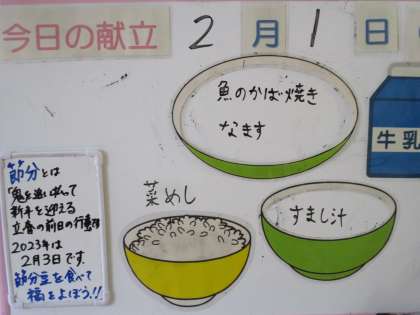 今日の献立 2月1日
魚のかば焼き
なます
牛乳
菜めし
すまし汁
節分とは
「鬼を追い払って
新年を迎える
立春の前日の行事
2023年は
2月3日です。
節分豆を食べて
福をよぼう!!